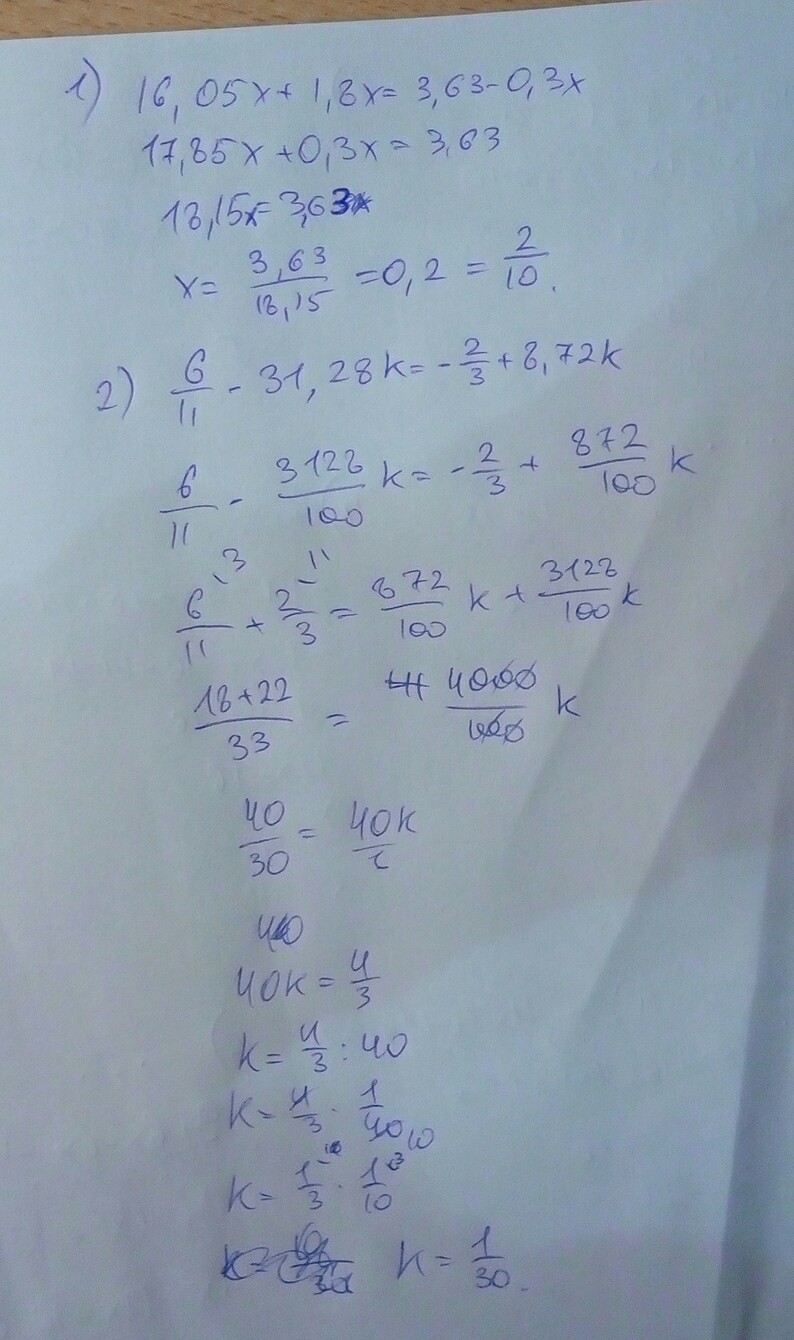 1) 16,05x + 1,8x = 3,63 - 0,3x
17,85x + 0,3x = 3,63
18,15x = 3,63
x = 3,63/18,15 = 0,2 = 2/10.
2) 6/11 - 31,28k = -2/3 + 8,72k
6/11 - 3128/100 k = -2/3 + 872/100 k
3 11
6/11 + 2/3 = 872/100 k + 3128/100 k
18+22/33 = 4000/100 k
40/30 = 40k/1
40
40k = 4/3
k = 4/3 : 40
k = 4/3 · 1/40 10
k = 1/3 · 1/10
k = 1/30.